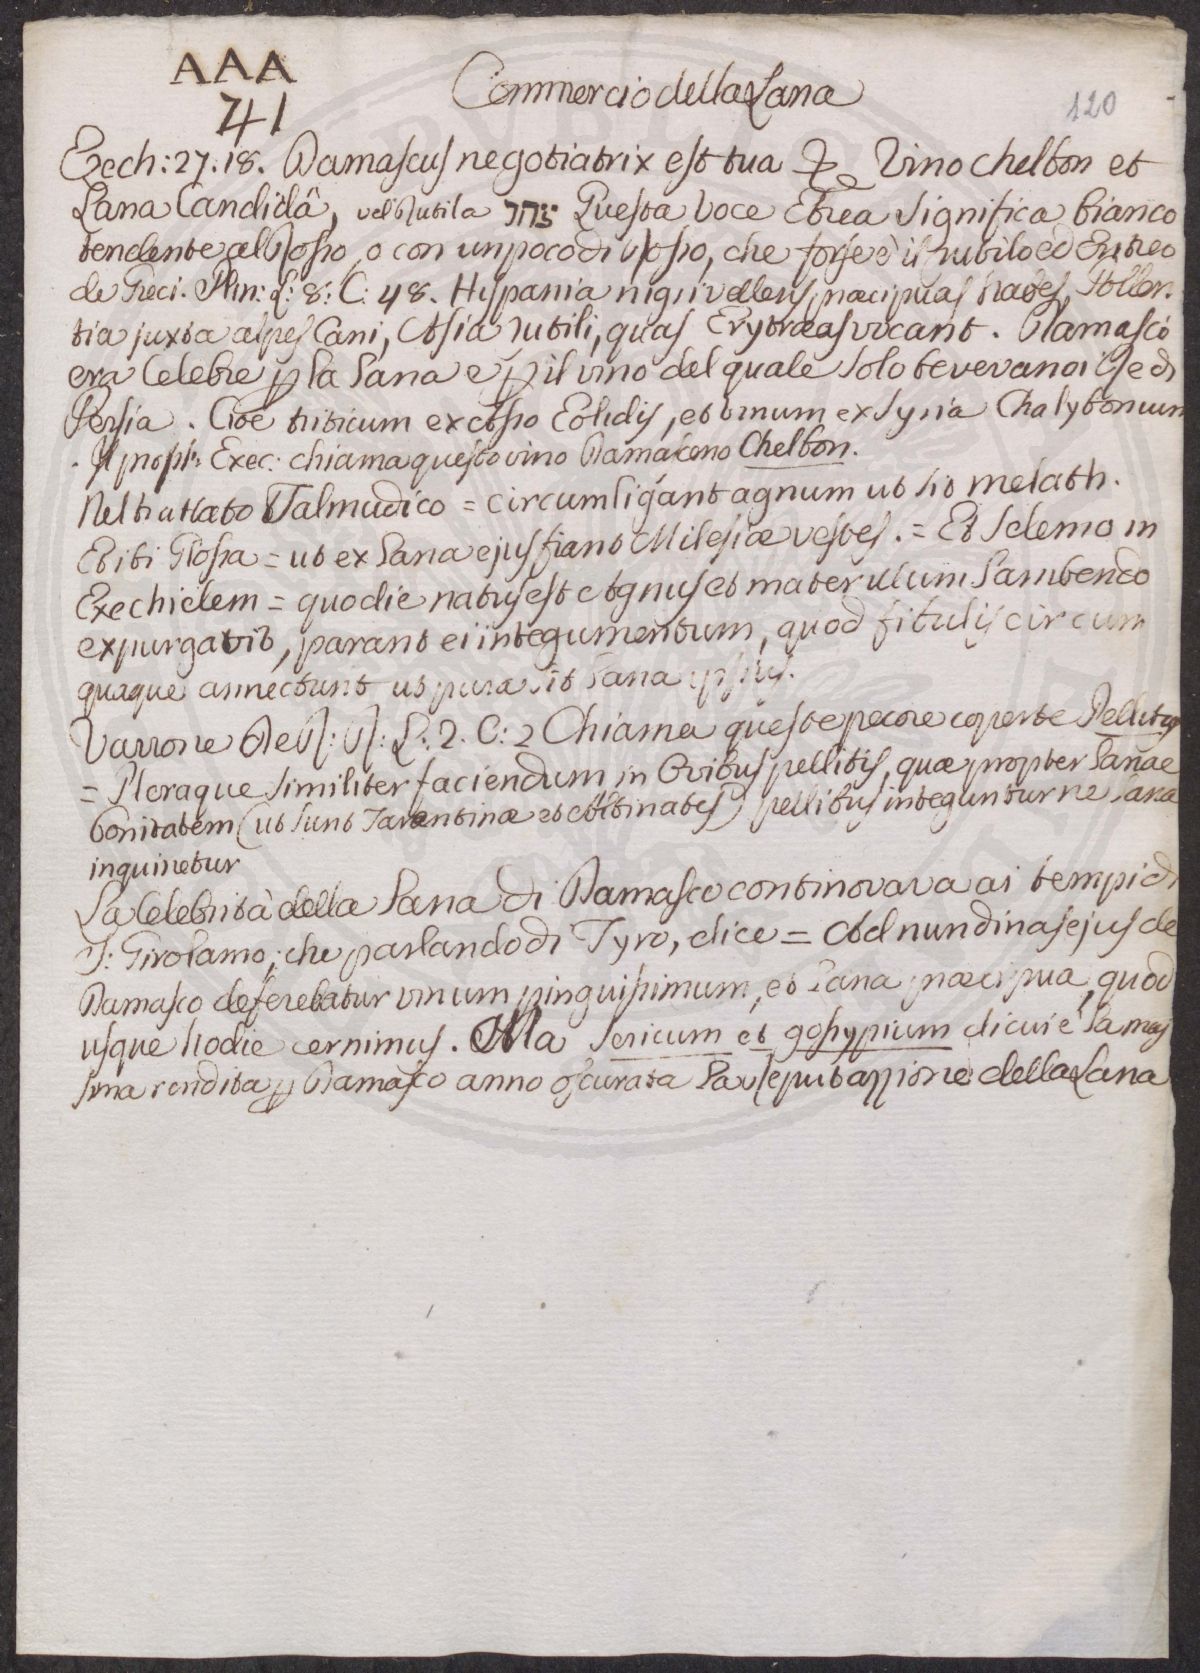 AAA
741
Commercio della Lana
120
Ezech: 27. 18. Damascus negotiatrix est tua &c Vino chelbon et
Lana Candidâ, vel Rutila צחר Questa Voce Ebrea significa bianco
tendente al Rosso, o con un poco di Rosso, che forse è il rutilo ed Eritreo
de Greci. Plin: L: 8: C: 48. Hispania nigri velleris praecipuas habet, Pollen-
tia juxta alpes Cani, Asia rutili, quas Erytraeas vocant. Damasco
era Celebre p la Lana e p il vino del quale solo bevevano i Re di
Persia. Cioè triticum ex Asso Eolidis, et vinum ex Syria Chalybonium
. Il propta Ezec: chiama questo vino Damasceno Chelbon.
Nel trattato Talmudico = circumligant agnum ut sit melath.
Et ibi Glossa = ut ex Lana ejus fiant Milesiae vestes. = Et Selemo in
Ezechielem = quo die natus est Agnus et mater illum Lambendo
expurgavit, parant ei integumentum, quod fibulis circum
quaque annectunt ut pura sit Lana ipsius.
Varrone De R: R: L: 2. C: 2 Chiama queste pecore coperte Pellitas
= Pleraque similiter faciendum in Ovibus pellitis, quae propter Lanae
bonitatem (ut sunt Tarentinae et Altinates) pellibus integuntur ne Lana
inquinetur
La Celebrità della Lana di Damasco continovava ai tempi di
S: Girolamo; che parlando di Tyro, dice = Ad nundinas ejus de
Damasco deferebatur vinum pinguissimum, et Lana praecipua, quod
usque hodie cernimus. Ma sericum et gossypium di cui è famos
sima rendita p Damasco anno oscurata La Reputazzione della Lana